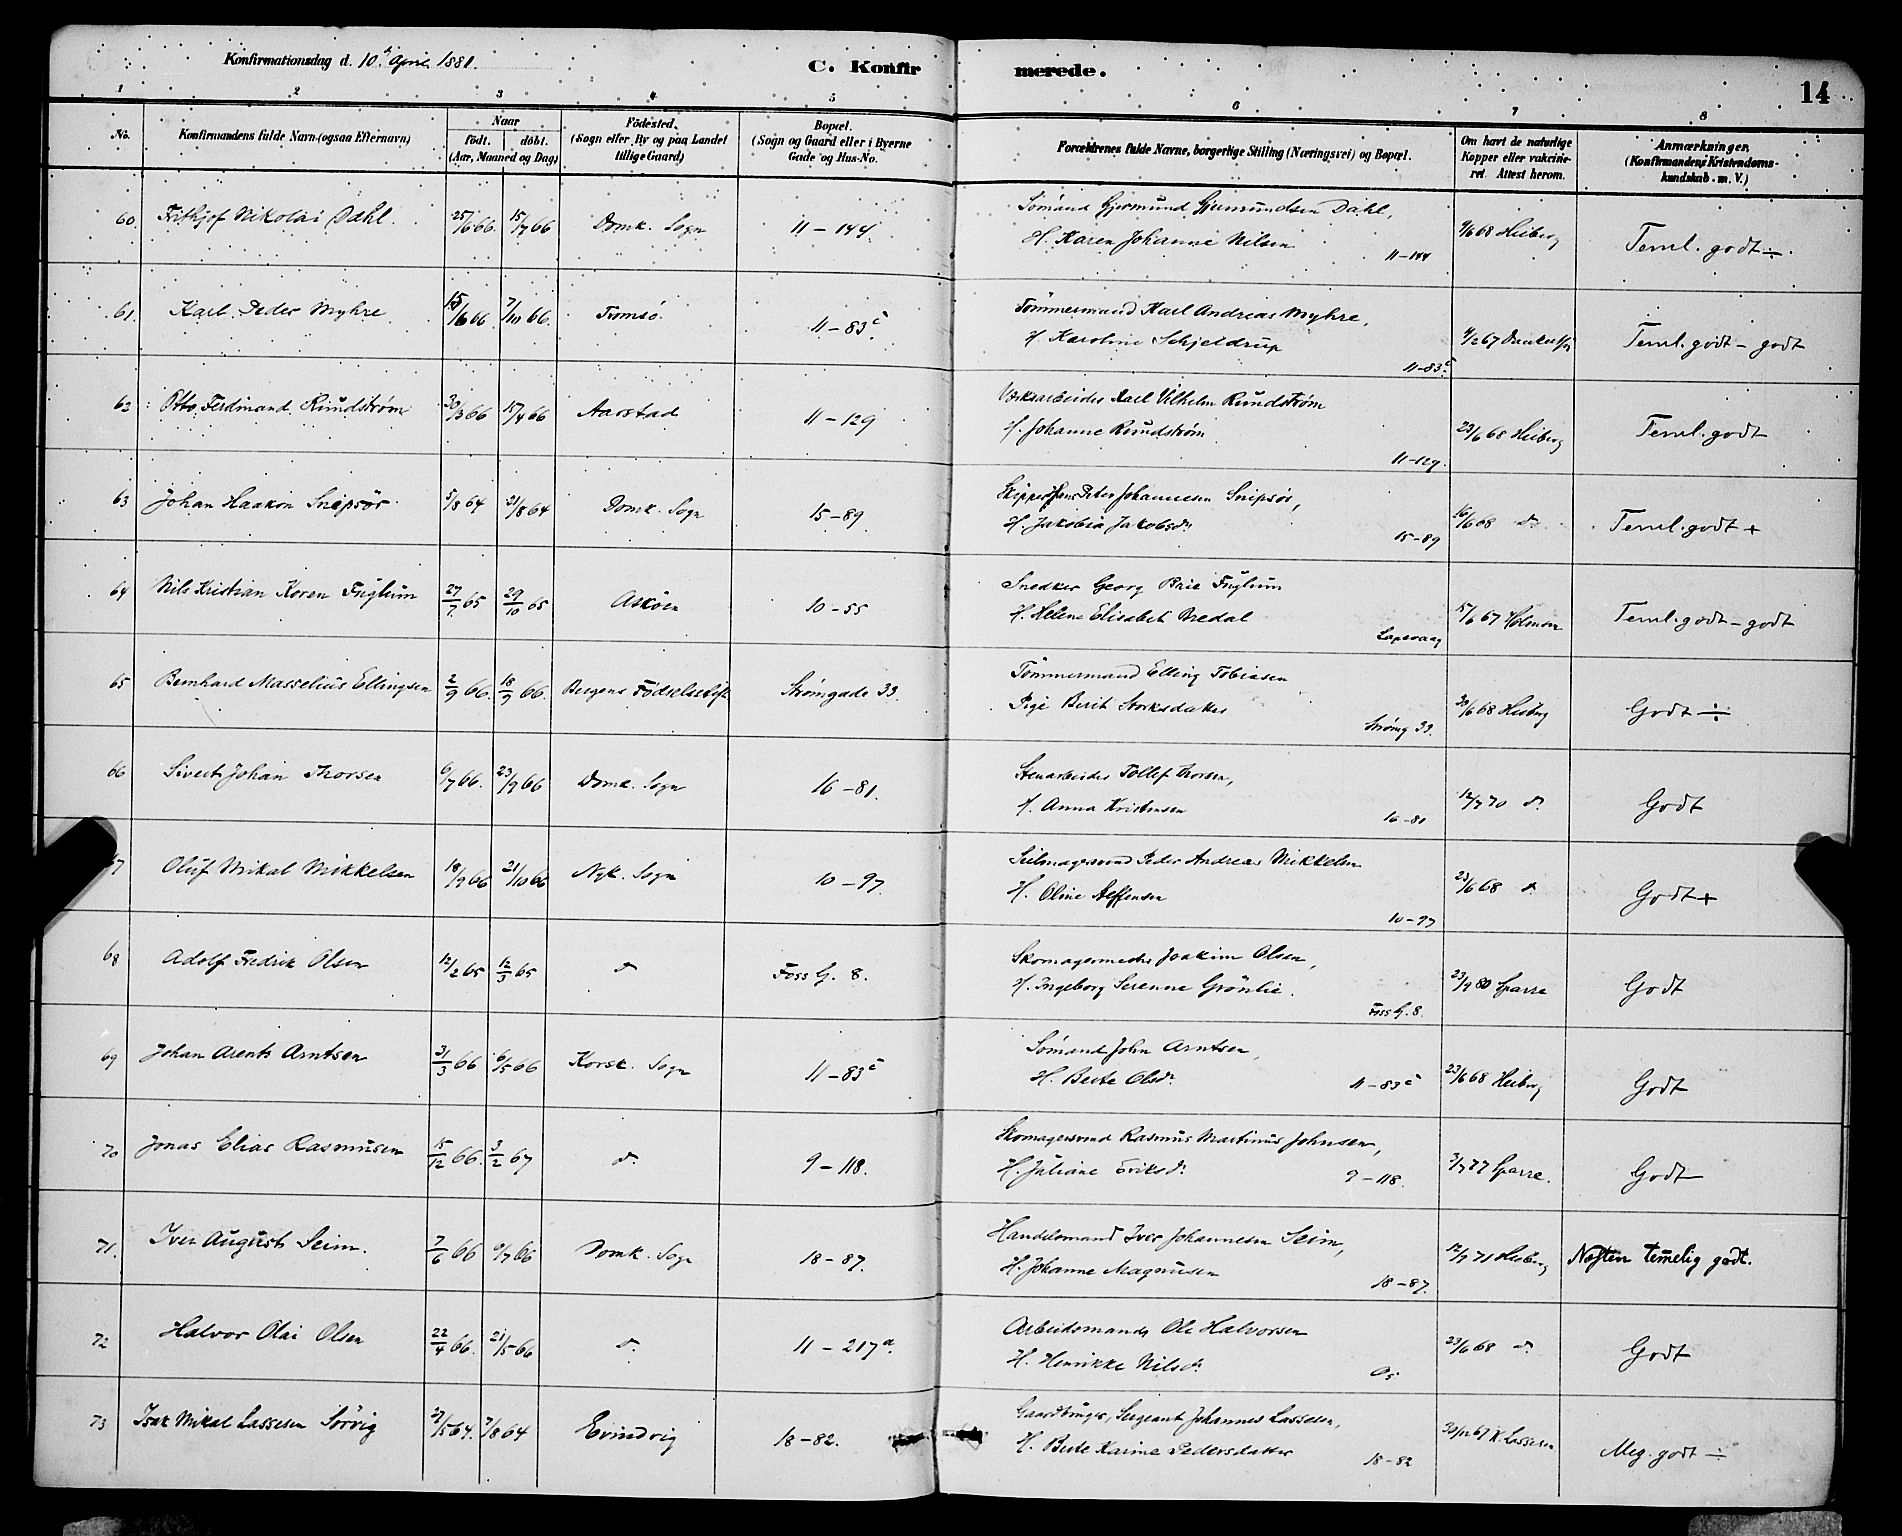 Konfirmationsdag d. 10de April 1881.
C. Konfirmerede.
14
1 2 3 4 5 6 7 8
No. Konfirmandens fulde Navn (ogsaa Efternavn) Naar født. døbt. (Aar, Maaned og Dag) Fødested. (Sogn eller By og paa Landet tillige Gaard) Bopæl. (Sogn og Gaard eller i Byerne Gade og Hus-No. Forældrenes fulde Navne, borgerlige Stilling (Næringsvei) og Bopæl. Om havt de naturlige Kopper eller vakcineret. Attest herom. Anmærkninger. (Konfirmandens Kristendomskundskab m. V.)
60 Frithjof Nikolai Dahl. 25/6 66. 15/7 66 Domk. Sogn 11-144. Sömand Gjermund Gjermundsen Dahl,
H. Karen Johanne Nilsen 11-144 9/6 68 Heiberg Teml. godt ÷.
61. Karl Peder Myhre 15/6 66 7/10 66. Tromsö. 11-83c Tömmermand Karl Andreas Myhre,
H. Karoline Schjeldrup 11-83c 4/2 67 Teml. godt - godt
62 Otto Ferdinand Rundström 30/3 66 15/4 66 Aarstad 11-129 Værksarbeider Karl Vilhelm Rundström
H. Johanne Rundström 11-129. 23/6 68 Heiberg Teml. godt
63 Johan Haakon Snipsör 5/8 64 21/8 64 Domk. Sogn 15-89. Skipper Jens Peter Johannesen Snipsör,
H. Jakobia Jakobsdr. 15-89 16/6 68 do. Teml. godt +
64 Nils Kristian Koren Fuglum 27/7 65 29/10 65 Asköen 10-55 Snedker Georg Brie Fuglum
H. Helene Elisabet Nedal Laxevaag 15/6 67 Teml. godt - godt
65 Bernhard Masselius Ellingsen 2/9 66. 18/9 66. Bergens Födselsstift. Strömgade 33. Tömmermand Elling Tobiasen
Pige Berit Storksdater Strömg 33. 30/6 68 Heiberg Godt ÷
66 Sivert Johan Thorsen 6/7 66. 23/9 66 Domk. Sogn 16-81. Stenarbeider Tollef Thorsen,
H. Anna Kristensen 16-81 12/7 70 do. Godt
67 Oluf Mikal Mikkelsen 18/9 66 21/10 66 Nyk. Sogn 10-97. Seilmagersvend Peder Andreas Mikkelsen
H. Oline Steffensen 10-97 23/6 68 do. Godt +
68 Adolf Fredrik Olsen 12/2 65 12/3 65 do Foss G. 8. Skomagermester Joakim Olsen,
H. Ingeborg Serenne Grönlie. Foss G. 8. 23/9 80 Sparre Godt
69 Johan Arent Arntsen 31/3 66 6/5 66 Korsk. Sogn 11-83c Sömand John Arntsen,
H. Berte Olsdr. 11-83c 23/6 68 Heiberg Godt
70 Jonas Elias Rasmussen 15/12 66. 3/2 67 do. 9-118. Skomagersvend Rasmus Martinus Johnsen,
H. Juliane Eriksdr. 9-118. 3/7 77 Sparre. Godt
71. Iver August Seim. 7/6 66 9/7 66 Domk. Sogn 18-87. Handelsmand Iver Johannesen Seim,
H. Johanne Magnusen 18-87. 12/7 71 Heiberg Næsten temelig godt.
72 Halvor Olai Olsen 22/4 66. 21/5 66 do. 11-217a. Arbeidsmand Ole Halvorsen
H. Henrikke Nilsdr. Os 23/6 68 do. Godt
73 Isak Mikal Lassesen Sörvig 27/5 64. 7/8 64 Evindvig 18-82. Gaardbruger, Sergeant Johannes Lassesen,
H. Berte Karine Pedersdatter 18-82 30/12 67 K. Lassesen Meg. godt ÷